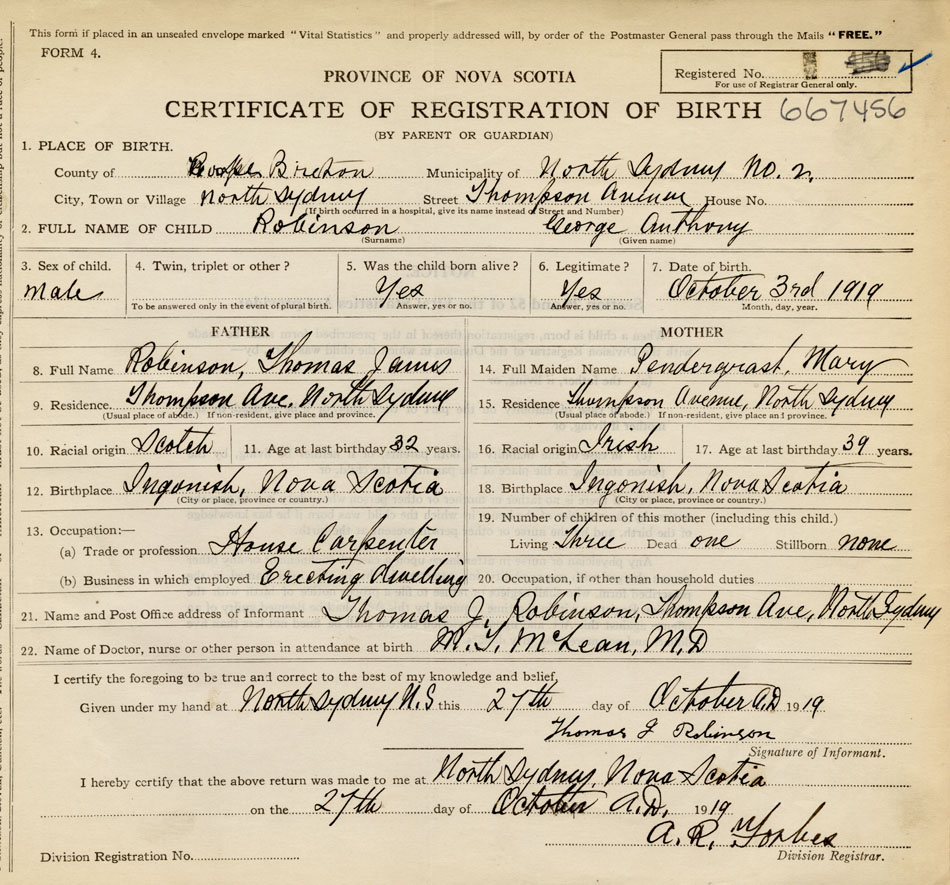 This form if placed in an unsealed envelope marked "Vital Statistics" and properly addressed will, by order of the Postmaster General pass through the Mails "FREE."
FORM 4.
Registered No. 456
For use of Registrar General only.
PROVINCE OF NOVA SCOTIA
CERTIFICATE OF REGISTRATION OF BIRTH 667456
(BY PARENT OR GUARDIAN)
1. PLACE OF BIRTH.
County of Breton Municipality of North Sydney No. 2,
City, Town or Village North Sydney Street Thompson Avenue House No.
(If birth occurred in a hospital, give its name instead of Street and Number)
2. FULL NAME OF CHILD Robinson George Anthony
(Surname) (Given name)
3. Sex of child. 4. Twin, triplet or other? 5. Was the child born alive? 6. Legitimate? 7. Date of birth.
Male Yes Yes October 3rd 1919
To be answered only in the event of plural birth. Answer, yes or no. Answer, yes or no. Month, day, year.
FATHER MOTHER
8. Full Name Robinson, Thomas James 14. Full Maiden Name Pendergrast, Mary
9. Residence. Thompson Ave, North Sydney 15. Residence Thompson Avenue, North Sydney
(Usual place of abode.) If non-resident, give place and province. (Usual place of abode.) If non-resident, give place and province.
10. Racial origin Scotch 11. Age at last birthday 32 years. 16. Racial origin Irish 17. Age at last birthday 39 years.
12. Birthplace Ingonish, Nova Scotia 18. Birthplace Ingonish, Nova Scotia
(City or place, province or country.) (City or place, province or country.)
13. Occupation:— 19. Number of children of this mother (including this child.)
(a) Trade or profession House Carpenter Living Three Dead one Stillborn none
(b) Business in which employed Erecting dwelling 20. Occupation, if other than household duties
21. Name and Post Office address of Informant Thomas J. Robinson, Thompson Ave, North Sydney
22. Name of Doctor, nurse or other person in attendance at birth M. T. McLean, M.D
I certify the foregoing to be true and correct to the best of my knowledge and belief,
Given under my hand at North Sydney N.S this 27th day of October A.D 1919
Thomas J Robinson
Signature of Informant.
I hereby certify that the above return was made to me at North Sydney, Nova Scotia
on the 27th day of October A.D. 1919
A. R. Forbes
Division Registration No. Division Registrar.